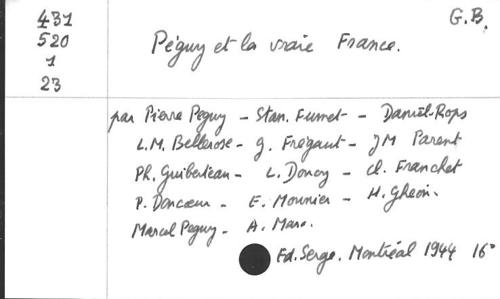 431
520
1
23
G.B.
Péguy et la vraie France.
par Pierre Peguy - Stan. Fumet - Daniel-Rops
L.M. Bellerose - G. Frégaut - JM Parent
Ph. Guiberteau - L. Doncy - Cl. Franchet
P. Doncœur - E. Mounier - H. Gheon.
Marcel Peguy - A. Marc.
Ed. Serge. Montréal 1944 16°